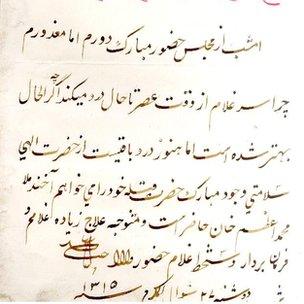 امشب از مجلس حضور مبارک دورم اما معذورم
چرا سر غلام از وقت عصر تا حال درد میکند اگرچه الحال
بهتر شده است اما هنوز درد باقیست از حضرت الهی
سلامتی وجود مبارک حضرت قبله خود را می‌خواهم آخند ملا
محمد عظیم خان حاضر است و متوجه علاج زیاده غلامم و
فرمان بردار و دستخط غلام حضور
دوشنبه ۲۷ شوال ۱۳۱۵